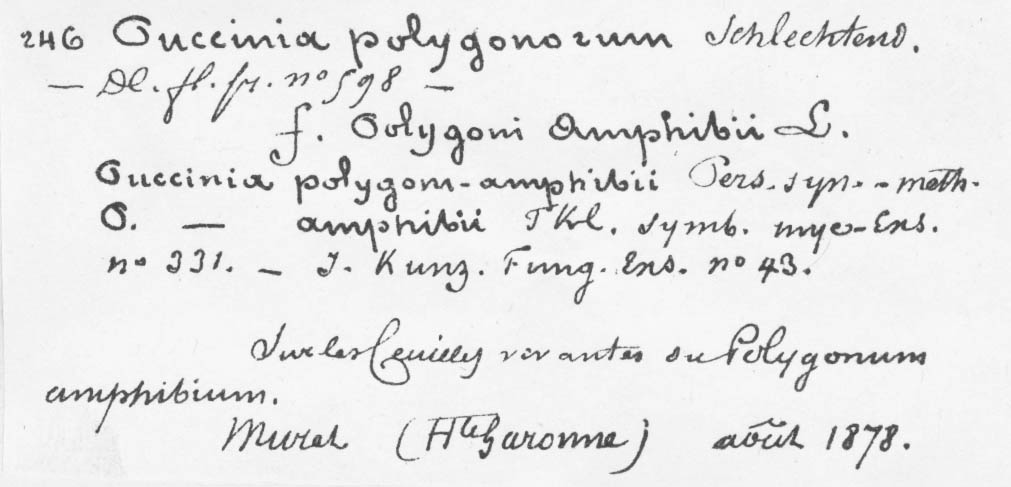 246 Puccinia polygonorum Schlechtend.
— DC. fl. fr. no 598 —
f. Polygoni Amphibii L.
Puccinia polygoni-amphibii Pers. syn. - meth.
P. — amphibii Fkl. symb. myc-Exs.
no 331. — J. Kunz. Fung. Exs. no 43.
Sur les feuilles vivantes du Polygonum
amphibium.
Muret (Hte Garonne) août 1878.